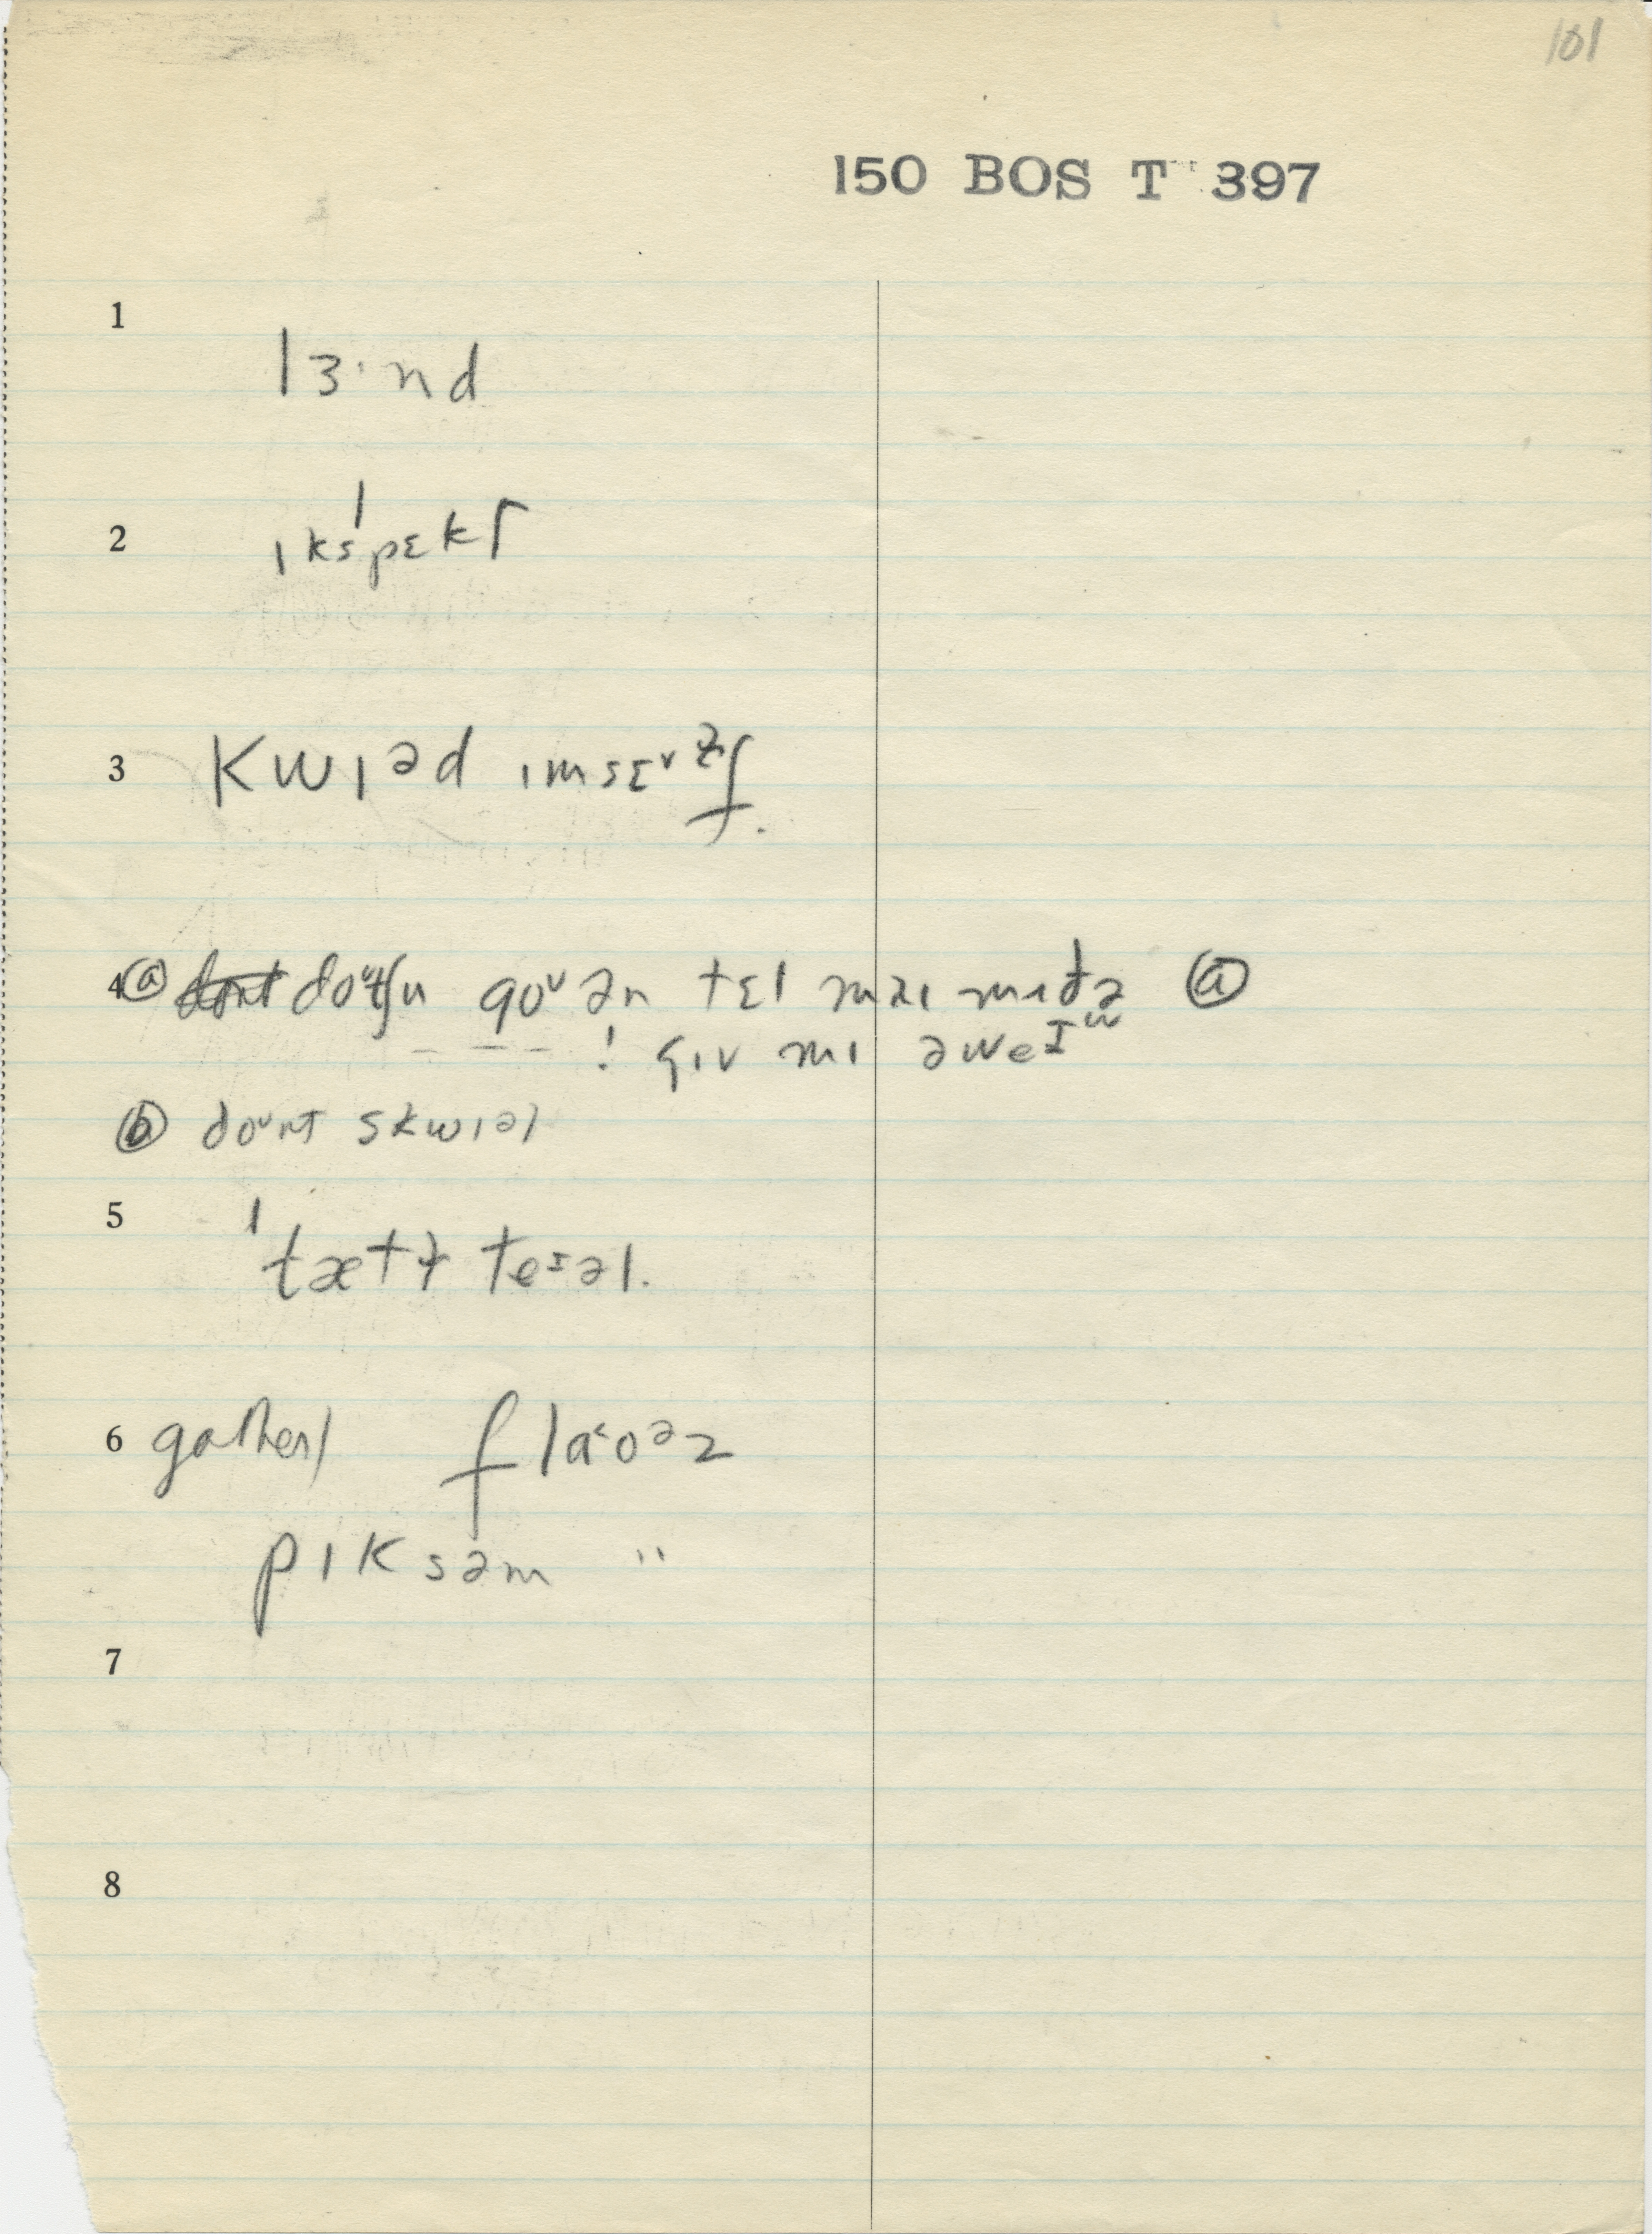 101
150 BOS T 397
1
lɜ·nd
2
ɪkˈspɛkt
3 kwɪəd ɪmsɛvɫf.
4 ⓐ doᶷtʃu goᶷ ən tɛl maɪ
--- ! gɪv mɪ əweɪ
ⓑ doᶷnt skwɪəl
5
ˈtætɫ teᶦəl.
6 gather/ fla˂oᵊz
pɪksəm "
7
8